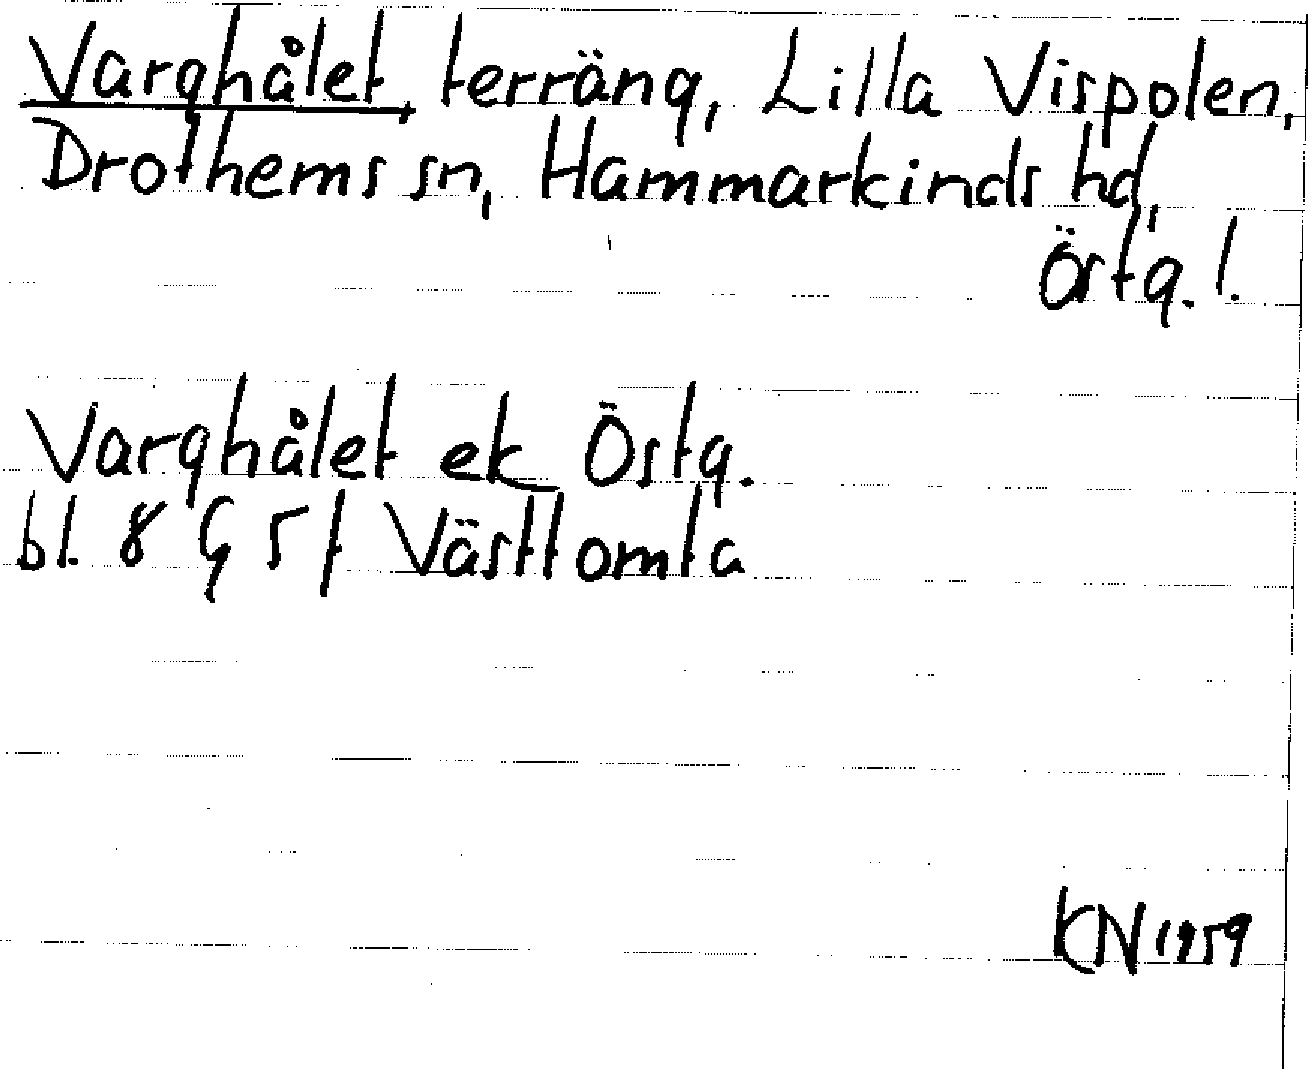 Varghålet, terräng, Lilla Vispolen,
Drothems sn, Hammarkinds hd,
Östg. l.
Varghålet ek Östg.
bl. 8 G 5 f Västtomta
KN 1959